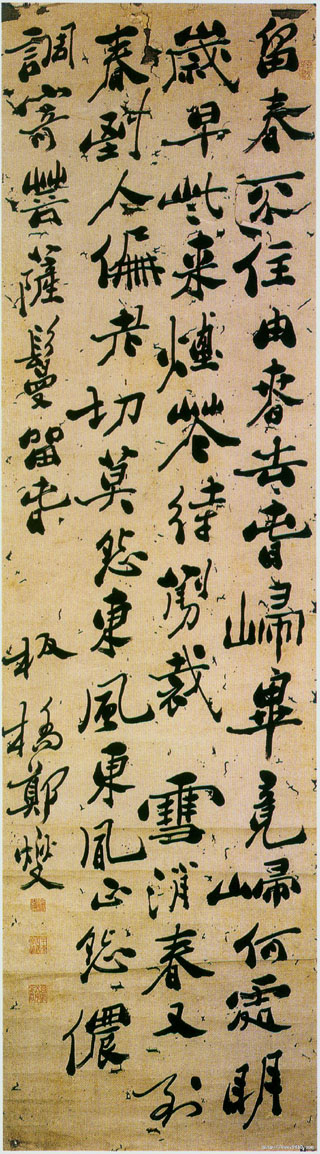 留春不住由春去春歸畢竟歸何處明
歲早些来煙花待剪裁雪消春又到
春到人偏老切莫怨東風東風正怨儂
調寄菩薩鬘留春 板橋鄭燮